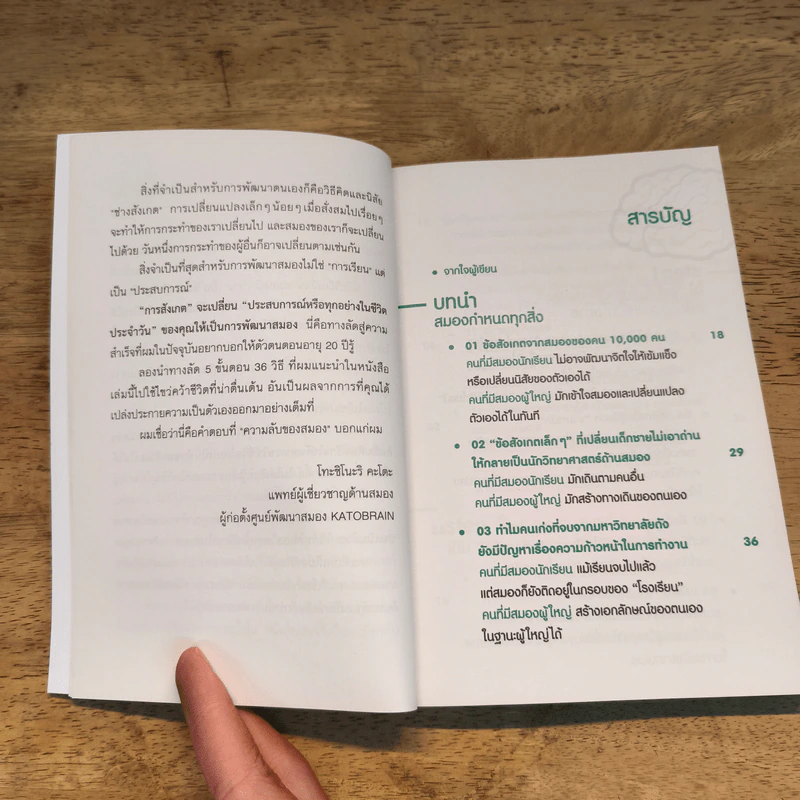 สิ่งที่จำเป็นสำหรับการพัฒนาตนเองก็คือวิธีคิดและนิสัย
"ช่างสังเกต" การเปลี่ยนแปลงเล็กๆ น้อยๆ เมื่อสั่งสมไปเรื่อยๆ
จะทำให้การกระทำของเราเปลี่ยนไป และสมองของเราก็จะเปลี่ยน
ไปด้วย วันหนึ่งการกระทำของผู้อื่นก็อาจเปลี่ยนตามเช่นกัน
สิ่งจำเป็นที่สุดสำหรับการพัฒนาสมองไม่ใช่ "การเรียน" แต่
เป็น "ประสบการณ์"
"การสังเกต" จะเปลี่ยน "ประสบการณ์หรือทุกอย่างในชีวิต
ประจำวัน" ของคุณให้เป็นการพัฒนาสมอง นี่คือทางลัดสู่ความ
สำเร็จที่ผมในปัจจุบันอยากบอกให้ตัวตนตอนอายุ 20 ปีรู้
ลองนำทางลัด 5 ขั้นตอน 36 วิธี ที่ผมแนะนำในหนังสือ
เล่มนี้ไปใช้ไขว่คว้าชีวิตที่น่าตื่นเต้น อันเป็นผลจากการที่คุณได้
เปล่งประกายความเป็นตัวเองออกมาอย่างเต็มที่
ผมเชื่อว่านี่คือคำตอบที่ "ความลับของสมอง" บอกแก่ผม
โทะชิโนะริ คะโตะ
แพทย์ผู้เชี่ยวชาญด้านสมอง
ผู้ก่อตั้งศูนย์พัฒนาสมอง KATOBRAIN
สารบัญ
• จากใจผู้เขียน
บทนำ
สมองกำหนดทุกสิ่ง
• 01 ข้อสังเกตจากสมองของคน 10,000 คน 18
คนที่มีสมองนักเรียน ไม่อาจพัฒนาจิตใจให้เข้มแข็ง
หรือเปลี่ยนนิสัยของตัวเองได้
คนที่มีสมองผู้ใหญ่ มักเข้าใจสมองและเปลี่ยนแปลง
ตัวเองได้ในทันที
• 02 "ข้อสังเกตเล็กๆ" ที่เปลี่ยนเด็กชายไม่เอาถ่าน
ให้กลายเป็นนักวิทยาศาสตร์ด้านสมอง 29
คนที่มีสมองนักเรียน มักเดินตามคนอื่น
คนที่มีสมองผู้ใหญ่ มักสร้างทางเดินของตนเอง
• 03 ทำไมคนเก่งที่จบจากมหาวิทยาลัยดัง
ยังมีปัญหาเรื่องความก้าวหน้าในการทำงาน 36
คนที่มีสมองนักเรียน แม้เรียนจบไปแล้ว
แต่สมองก็ยังติดอยู่ในกรอบของ "โรงเรียน"
คนที่มีสมองผู้ใหญ่ สร้างเอกลักษณ์ของตนเอง
ในฐานะผู้ใหญ่ได้